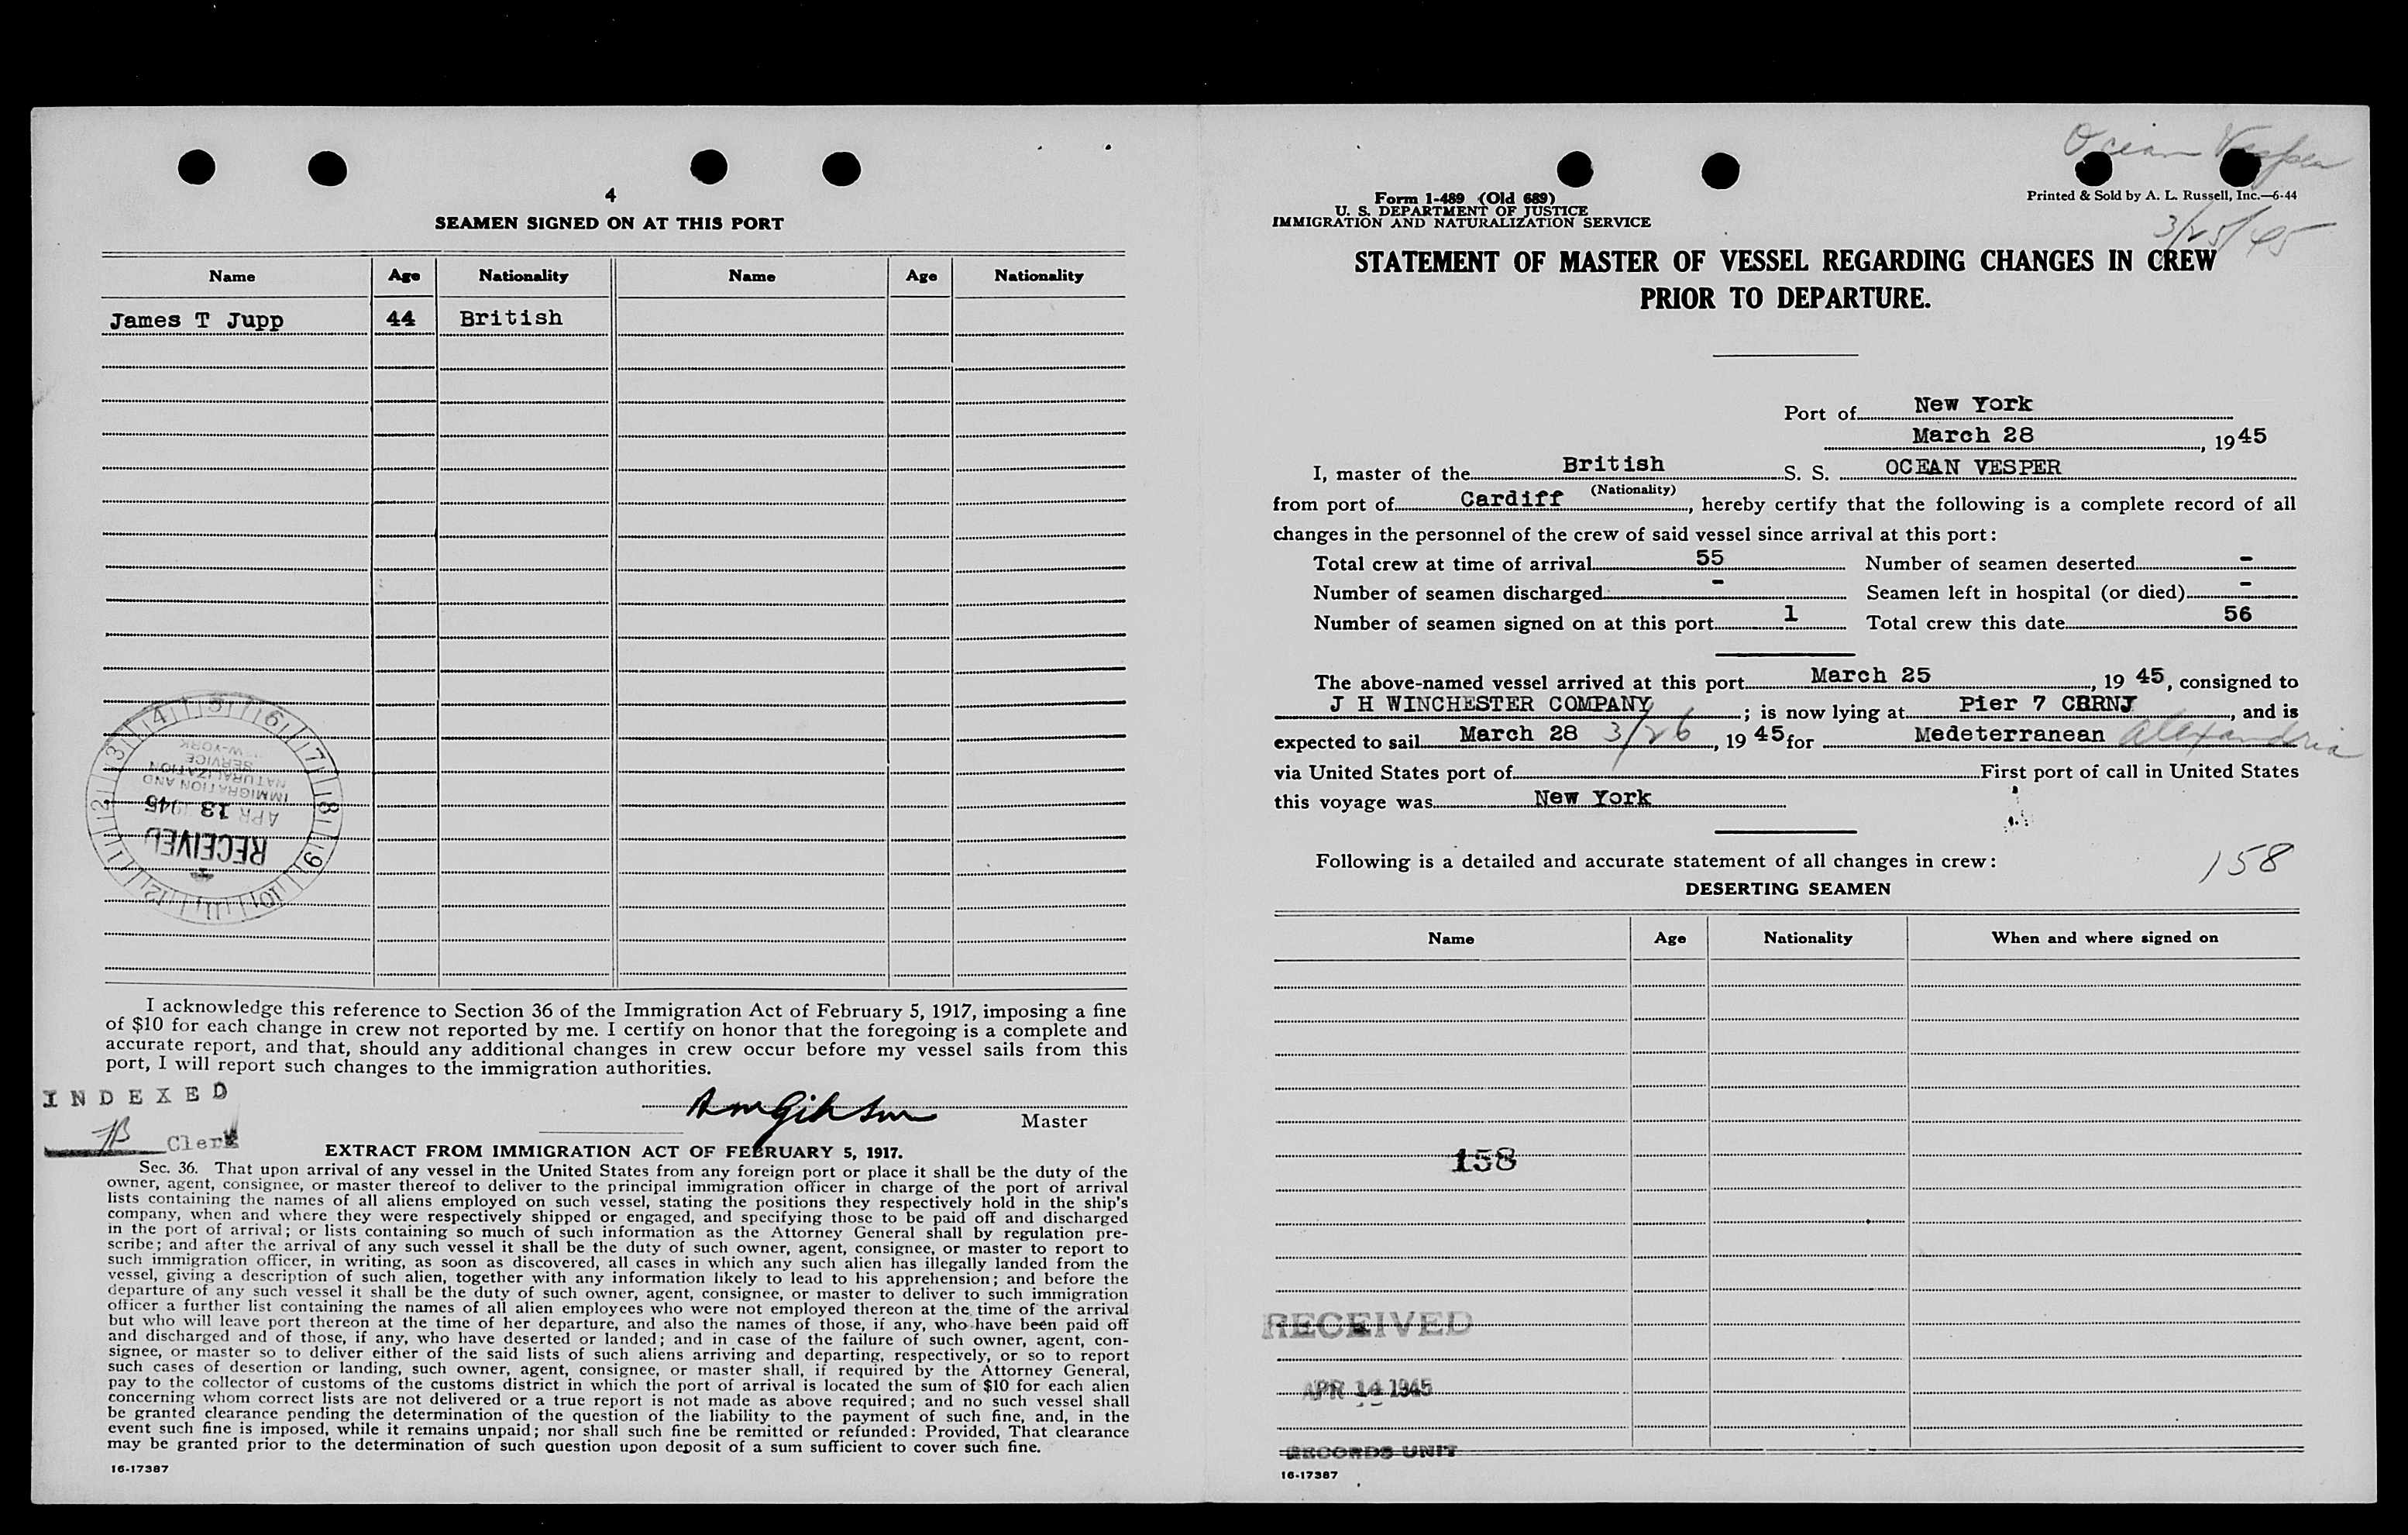 4
SEAMEN SIGNED ON AT THIS PORT
Name Age Nationality Name Age Nationality
James T Jupp 44 British
RECEIVED
APR 13 1945
IMMIGRATION AND
NATURALIZATION
SERVICE
W-YORK
1 2 3 4 5 6 7 8 9 10 11 12
I acknowledge this reference to Section 36 of the Immigration Act of February 5, 1917, imposing a fine
of $10 for each change in crew not reported by me. I certify on honor that the foregoing is a complete and
accurate report, and that, should any additional changes in crew occur before my vessel sails from this
port, I will report such changes to the immigration authorities.
INDEXED
Clerk
Master
EXTRACT FROM IMMIGRATION ACT OF FEBRUARY 5, 1917.
Sec. 36. That upon arrival of any vessel in the United States from any foreign port or place it shall be the duty of the
owner, agent, consignee, or master thereof to deliver to the principal immigration officer in charge of the port of arrival
lists containing the names of all aliens employed on such vessel, stating the positions they respectively hold in the ship's
company, when and where they were respectively shipped or engaged, and specifying those to be paid off and discharged
in the port of arrival; or lists containing so much of such information as the Attorney General shall by regulation pre-
scribe; and after the arrival of any such vessel it shall be the duty of such owner, agent, consignee, or master to report to
such immigration officer, in writing, as soon as discovered, all cases in which any such alien has illegally landed from the
vessel, giving a description of such alien, together with any information likely to lead to his apprehension; and before the
departure of any such vessel it shall be the duty of such owner, agent, consignee, or master to deliver to such immigration
officer a further list containing the names of all alien employees who were not employed thereon at the time of the arrival
but who will leave port thereon at the time of her departure, and also the names of those, if any, who have been paid off
and discharged and of those, if any, who have deserted or landed; and in case of the failure of such owner, agent, con-
signee, or master so to deliver either of the said lists of such aliens arriving and departing, respectively, or so to report
such cases of desertion or landing, such owner, agent, consignee, or master shall, if required by the Attorney General,
pay to the collector of customs of the customs district in which the port of arrival is located the sum of $10 for each alien
concerning whom correct lists are not delivered or a true report is not made as above required; and no such vessel shall
be granted clearance pending the determination of the question of the liability to the payment of such fine, and, in the
event such fine is imposed, while it remains unpaid; nor shall such fine be remitted or refunded: Provided, That clearance
may be granted prior to the determination of such question upon deposit of a sum sufficient to cover such fine.
16-17387
Ocean Vesper
Form 1-489 (Old 689)
U. S. DEPARTMENT OF JUSTICE
IMMIGRATION AND NATURALIZATION SERVICE
Printed & Sold by A. L. Russell, Inc.—6-44
3/25/45
STATEMENT OF MASTER OF VESSEL REGARDING CHANGES IN CREW
PRIOR TO DEPARTURE.
Port of New York
March 28, 1945
I, master of the British S. S. OCEAN VESPER
(Nationality)
from port of Cardiff, hereby certify that the following is a complete record of all
changes in the personnel of the crew of said vessel since arrival at this port:
Total crew at time of arrival 55 Number of seamen deserted -
Number of seamen discharged - Seamen left in hospital (or died) -
Number of seamen signed on at this port 1 Total crew this date 56
The above-named vessel arrived at this port March 25, 19 45, consigned to
J H WINCHESTER COMPANY; is now lying at Pier 7 CRRNJ, and is
expected to sail March 28 3/26, 19 45 for Medeterranean Alexandria
via United States port of First port of call in United States
this voyage was New York
Following is a detailed and accurate statement of all changes in crew:
158
DESERTING SEAMEN
Name Age Nationality When and where signed on
158
RECEIVED
APR 14 1945
RECORDS UNIT
16-17387